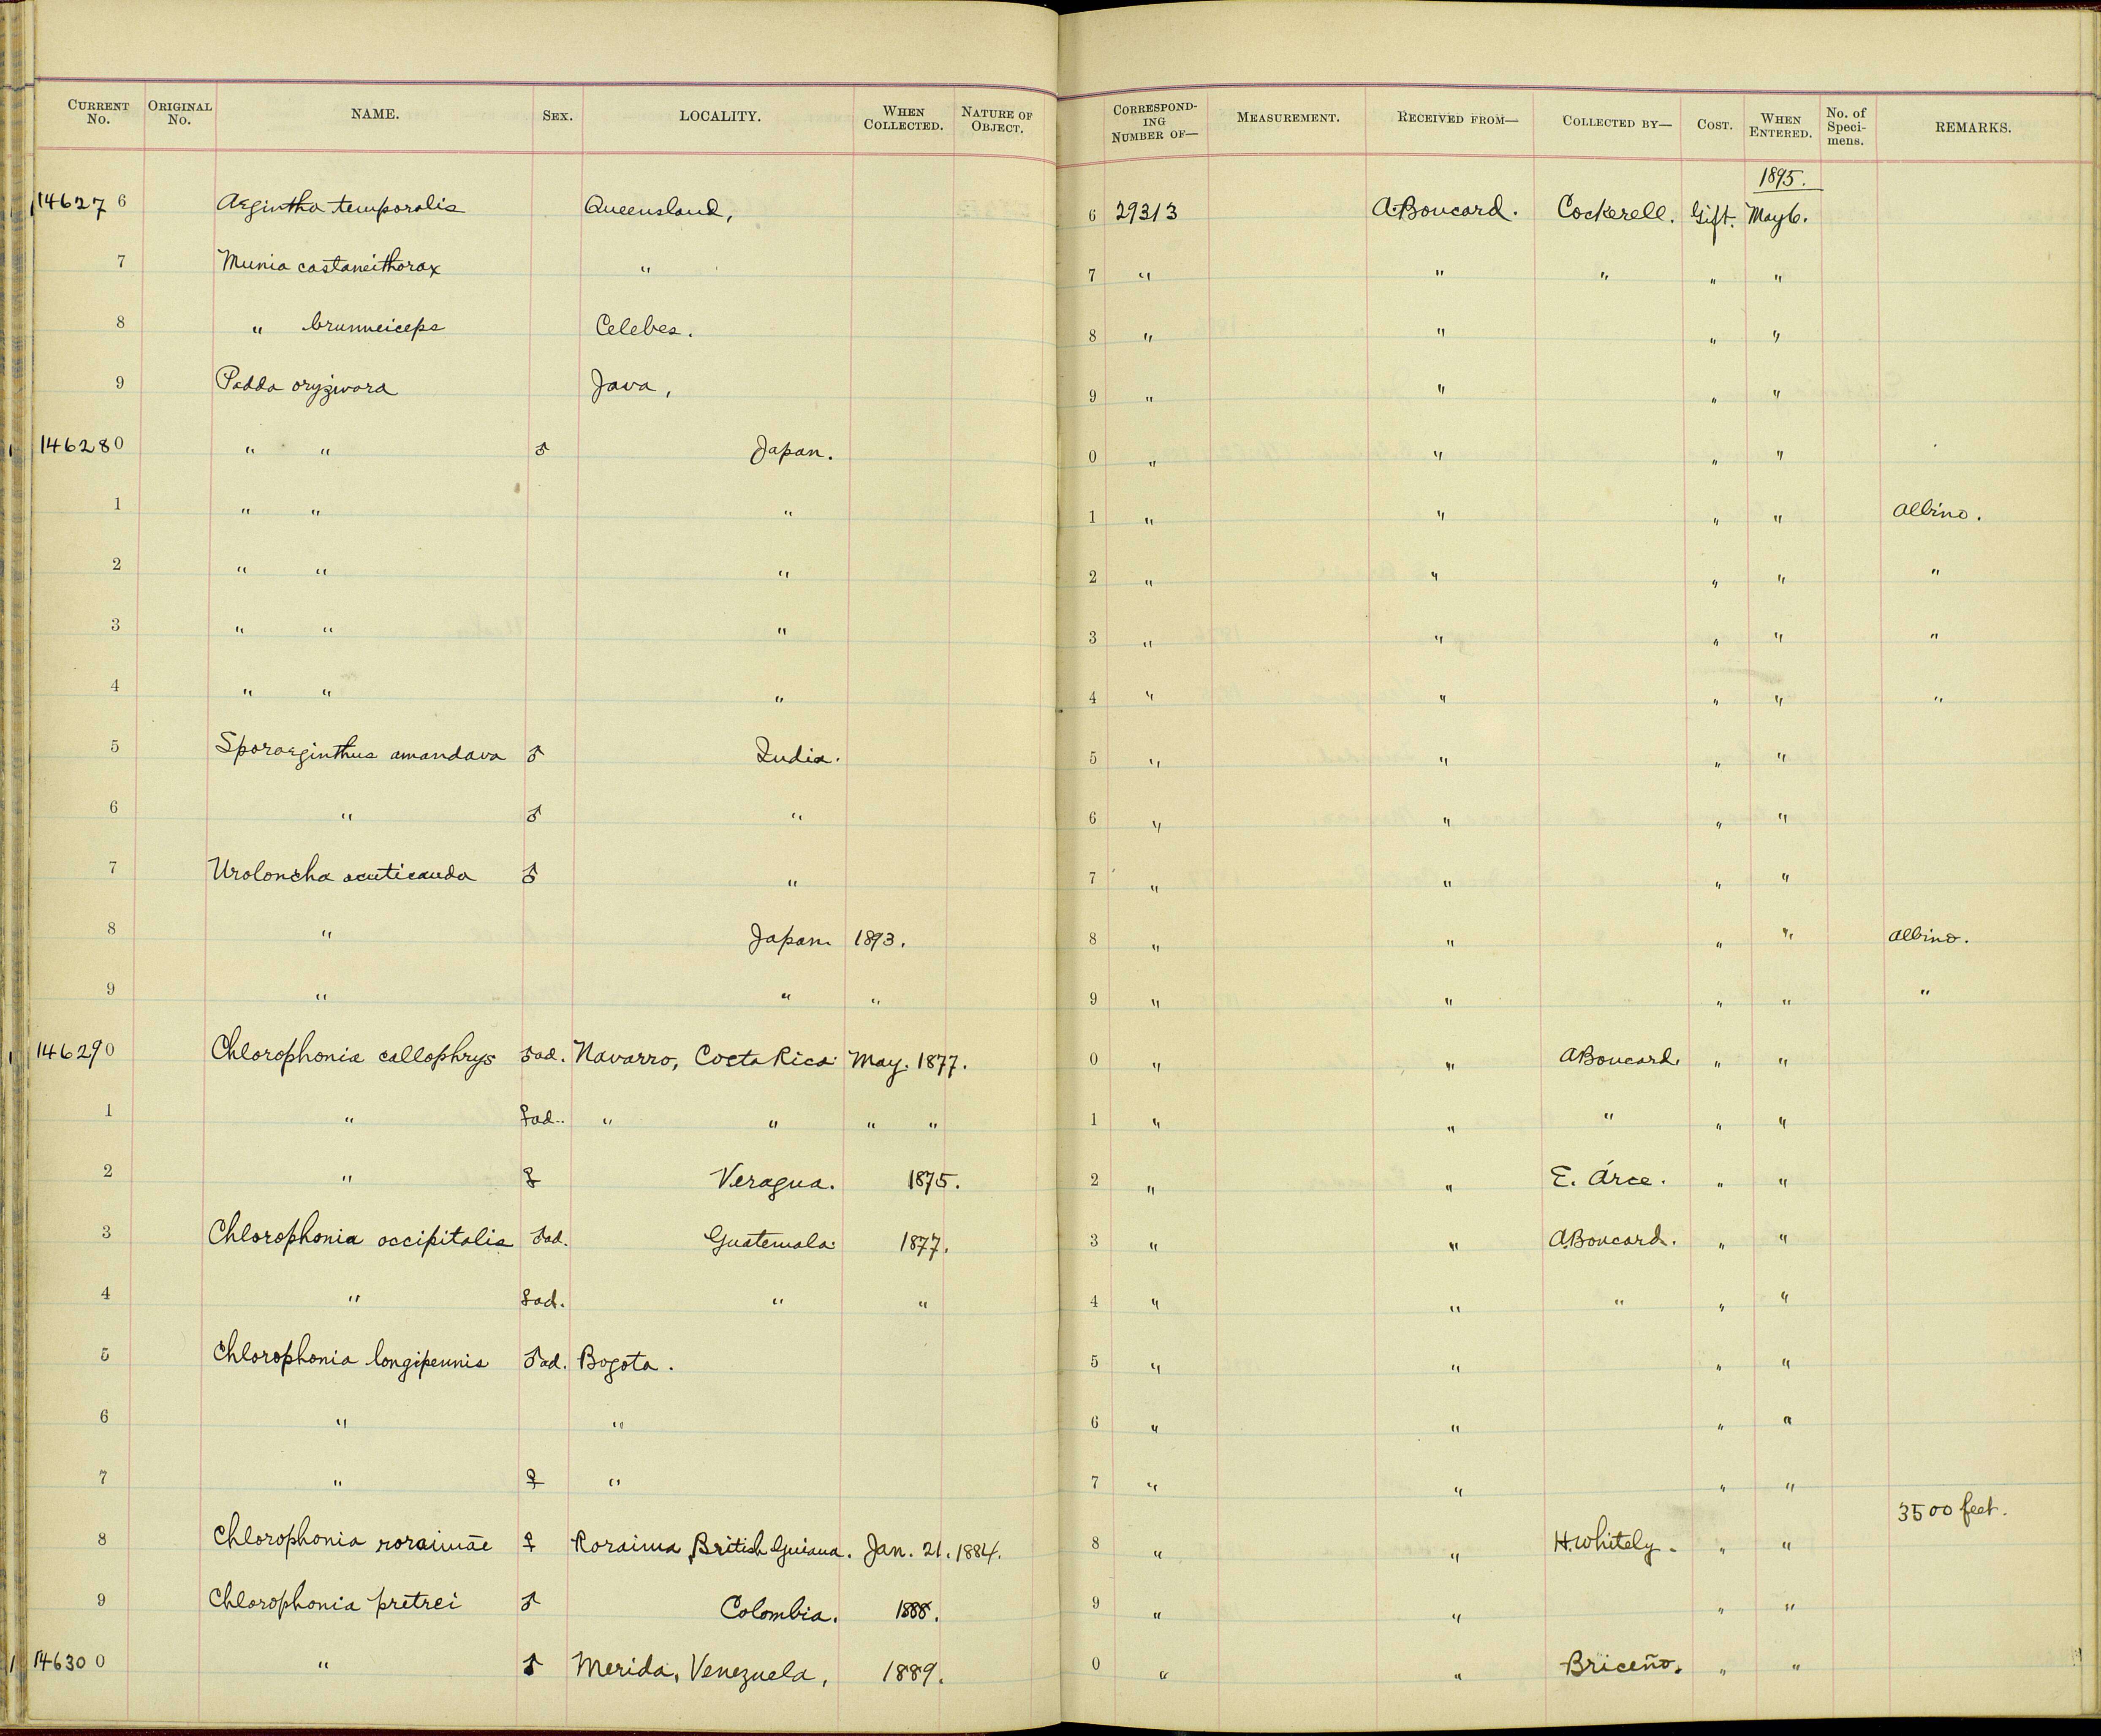 CURRENT No. ORIGINAL No. NAME. SEX. LOCALITY. WHEN COLLECTED. NATURE OF OBJECT. CORRESPONDING NUMBER OF— MEASUREMENT. RECEIVED FROM— COLLECTED BY— COST. WHEN ENTERED. No. of Specimens. REMARKS.
1895.
146276 Aegintha temporalis Queensland, 6 29313 A. Boucard. Cockerell. Gift. May 6.
7 Munia castaneithorax " 7 " " " " "
8 " brunneiceps Celebes. 8 " " " "
9 Padda oryzivora Java, 9 " " " "
146280 " " ♂ Japan. 0 " " " "
1 " " " 1 " " " " Albino.
2 " " " 2 " " " " "
3 " " " 3 " " " " "
4 " " " 4 " " " " "
5 Sporaeginthus amandava ♂ India. 5 " " " "
6 " ♂ " 6 " " " "
7 Uroloncha acuticauda ♂ " 7 " " " "
8 " Japan 1893. 8 " " " " Albino.
9 " " " 9 " " " " "
146290 Chlorophonia callophrys ♂ad. Navarro, Costa Rica May. 1877. 0 " " A Boucard. " "
1 " ♀ad. " " " " 1 " " " " "
2 " ♀ Veragua. 1875. 2 " " E. Árce. " "
3 Chlorophonia occipitalis ♂ad. Guatemala 1877. 3 " " A. Boucard. " "
4 " ♀ad. " " 4 " " " " "
5 Chlorophonia longipennis ♂ad. Bogota. 5 " " " "
6 " " 6 " " " "
7 " ♀ " 7 " " " "
8 Chlorophonia roraimae ♀ Roraima, British Guiana. Jan. 21. 1884. 8 " " H. Whitely. " " 3500 feet.
9 Chlorophonia pretrei ♂ Colombia. 1888. 9 " " " "
146300 " ♂ Merida, Venezuela, 1889. 0 " " Briceño. " "